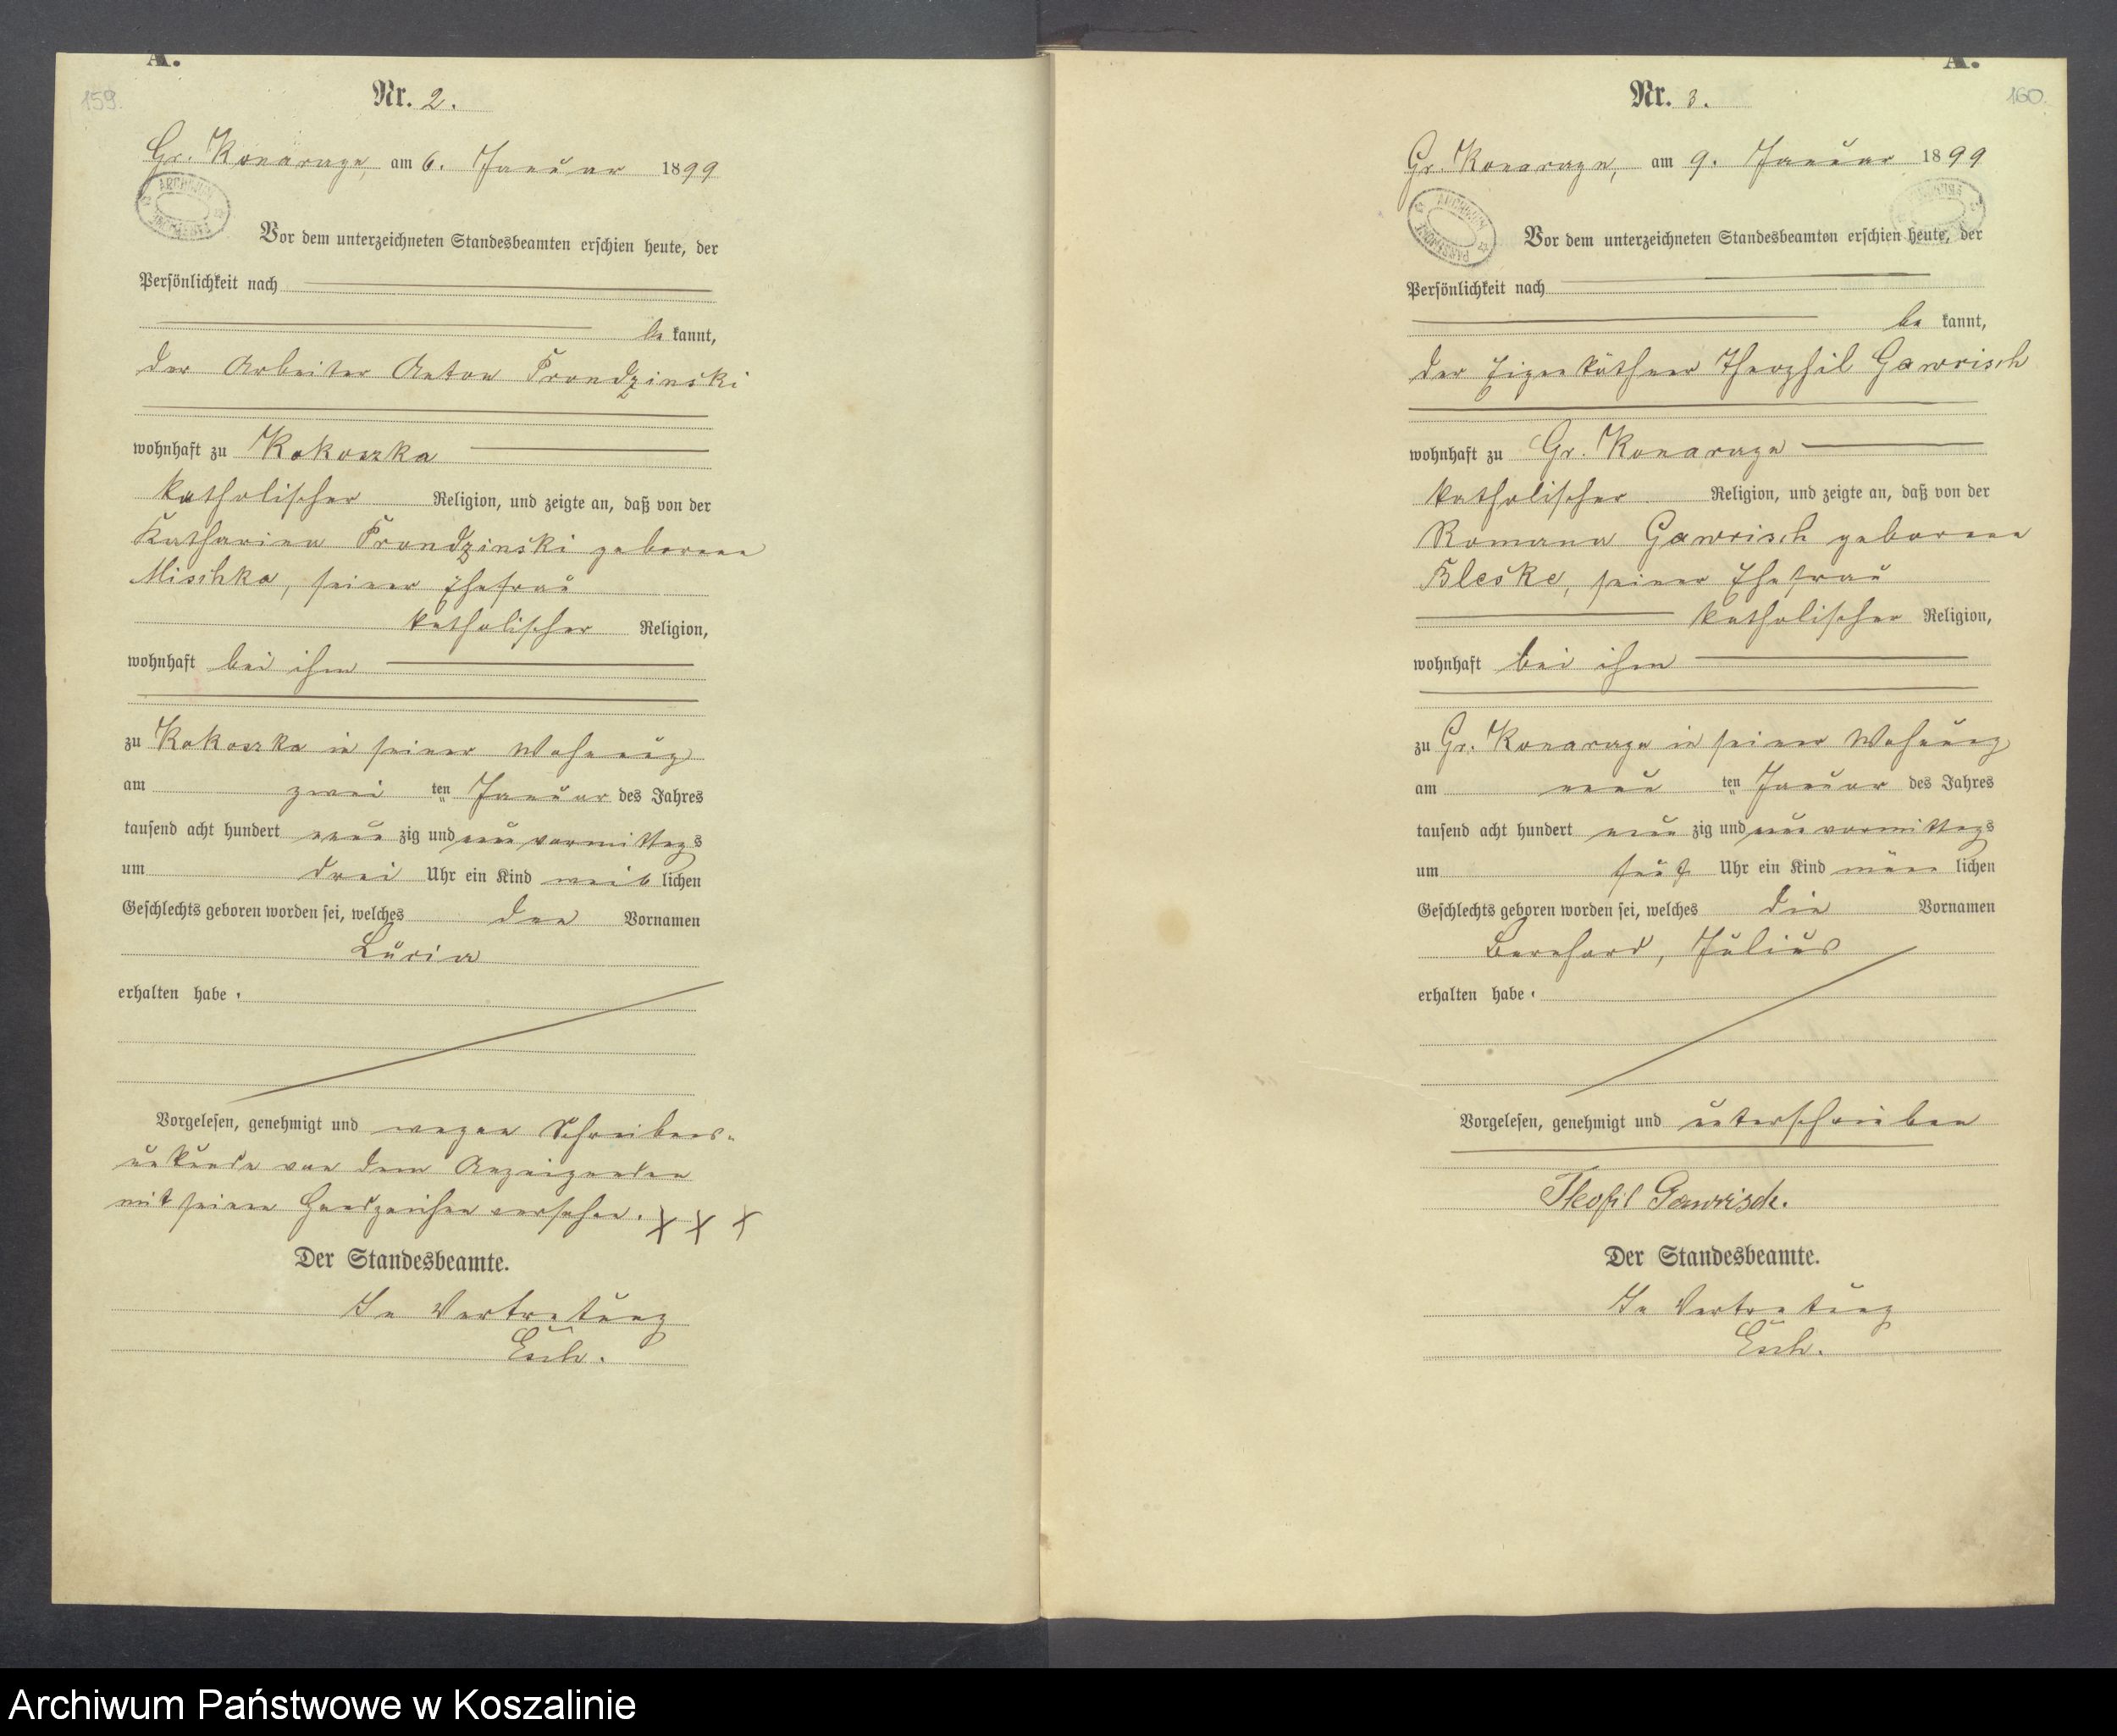 A.
159.
Nr. 2.
Gr. Konarzyn, am 6. Januar 1899
ARCHIWUM PAŃSTWOWE
Vor dem unterzeichneten Standesbeamten erschien heute, der
Persönlichkeit nach
be kannt,
der Arbeiter Anton Prondzinski
wohnhaft zu Kokoszka
katholischer Religion, und zeigte an, daß von der
Katharina Prondzinski geborene
Mischka, seiner Ehefrau
katholischer Religion,
wohnhaft bei ihm
zu Kokoszka in seiner Wohnung
am zwei ten Januar des Jahres
tausend acht hundert neun zig und neun vormittags
um drei Uhr ein Kind weib lichen
Geschlechts geboren worden sei, welches den Vornamen
erhalten habe.
Vorgelesen, genehmigt und wegen Schreibens-
unkunde von dem Anzeigenden
mit seinem Handzeichen versehen. X X X
Der Standesbeamte.
In Vertretung
A.
160.
Nr. 3.
Gr. Konarzyn, am 9. Januar 1899
ARCHIWUM PAŃSTWOWE
Vor dem unterzeichneten Standesbeamten erschien heute, der
Persönlichkeit nach
be kannt,
der Eigenkäthner Theophil Gawrisch
wohnhaft zu Gr. Konarzyn
katholischer Religion, und zeigte an, daß von der
Romana Gawrisch geborene
Bleske, seiner Ehefrau
katholischer Religion,
wohnhaft bei ihm
zu Gr. Konarzyn in seiner Wohnung
am neun ten Januar des Jahres
tausend acht hundert neun zig und neun vormittags
um fünf Uhr ein Kind männ lichen
Geschlechts geboren worden sei, welches die Vornamen
Bernhard, Julius
erhalten habe.
Vorgelesen, genehmigt und unterschrieben
Teofil Gawrisch.
Der Standesbeamte.
In Vertretung
Archiwum Państwowe w Koszalinie